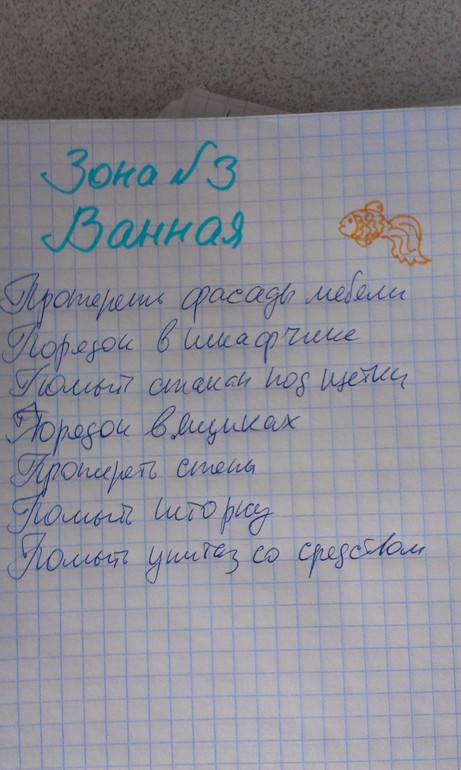 Зона №3
Ванная
Протереть фасады мебели
Порядок в шкафчике
Помыть стакан под щетки
Порядок в ящиках
Протереть стены
Помыть шторку
Помыть унитаз со средством